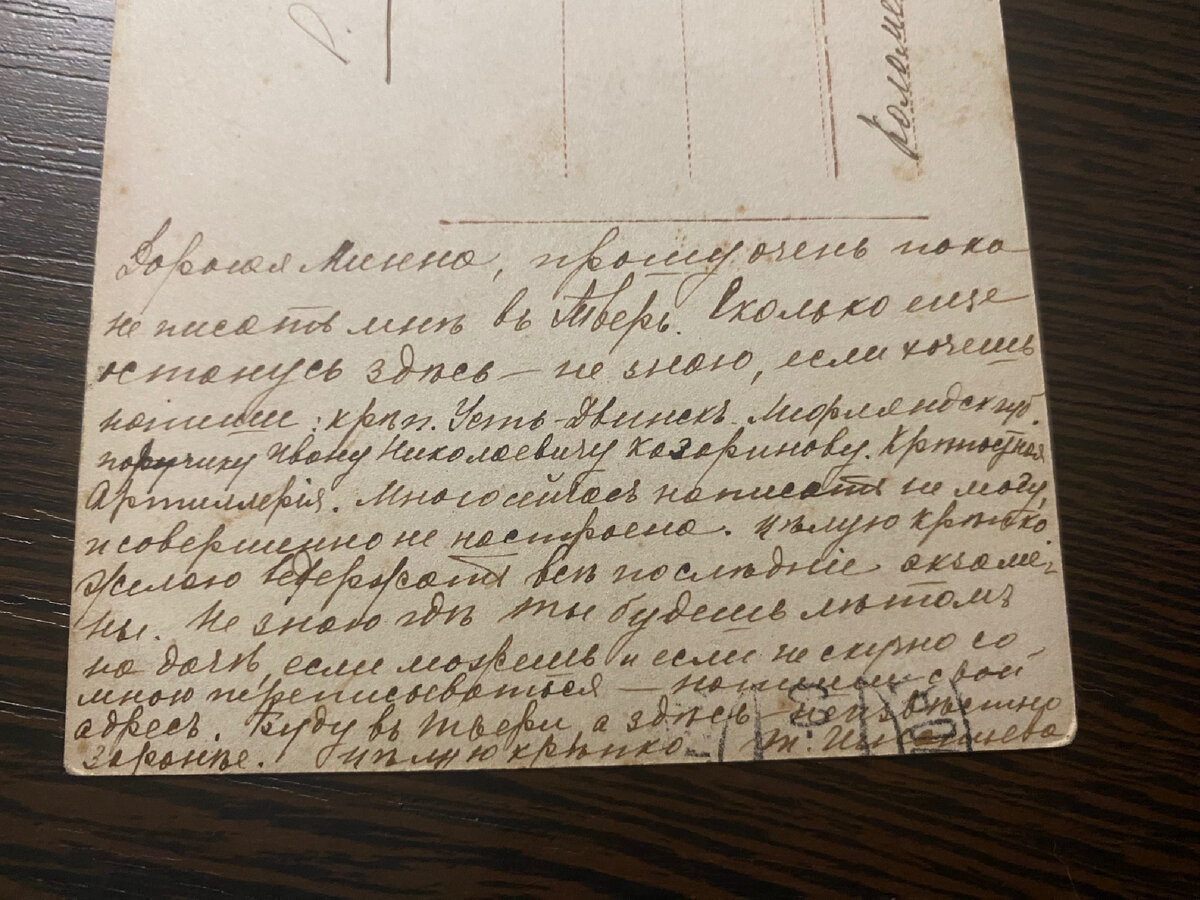 р.
Колом
Дорогая Минна, прошу очень пока
не писать мнѣ въ Тверь. Сколько еще
останусь здѣсь – не знаю, если хочешь
напиши: крѣп. Усть-Двинскъ Лифляндск губ.
поручику Ивану Николаевичу Казаринову. Крѣпостная
Артиллерія. Много сейчасъ написать не могу,
и совершенно не настроена. Цѣлую крѣпко.
Желаю выдержать всѣ послѣдніе экзаме-
ны. Не знаю гдѣ ты будешь лѣтомъ
на дачѣ, если можешь и если не скучно со
мною переписываться – напиши свой
адресъ. Буду въ Твери а здѣсь – неизвѣстно
заранѣе. Цѣлую крѣпко Т.